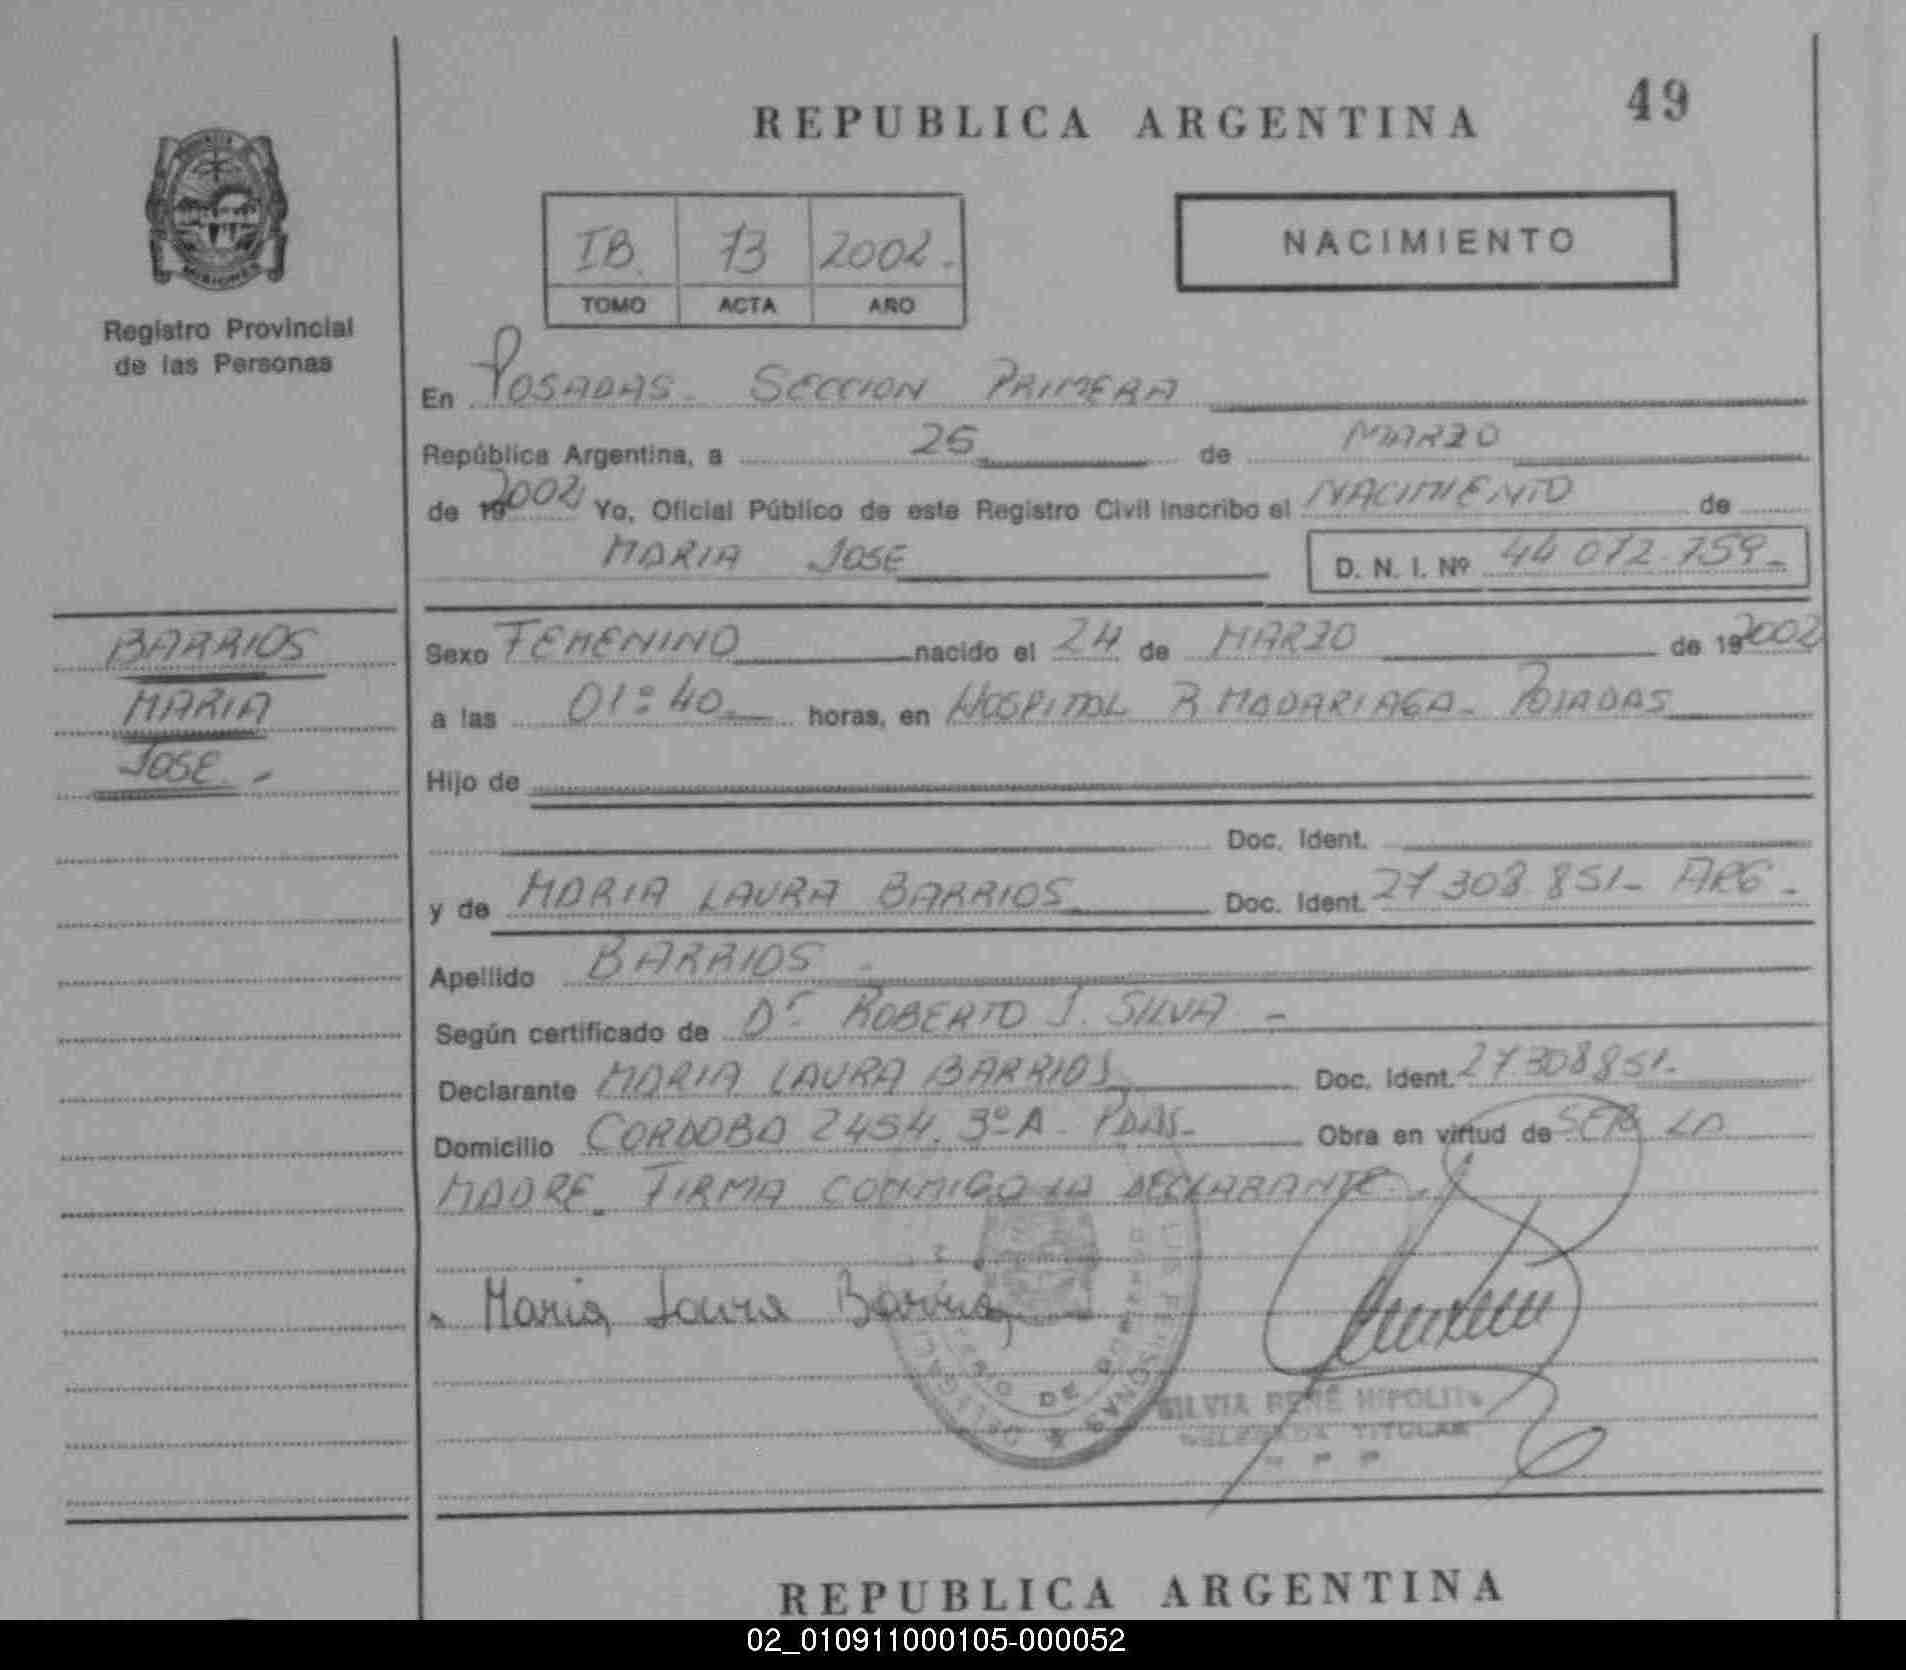 REPUBLICA ARGENTINA 49
MISIONES
Registro Provincial
de las Personas
IB. 73 2002.
TOMO ACTA AÑO
NACIMIENTO
En POSADAS - SECCION PRIMERA
República Argentina, a 25 de MARZO
de 19 2002 Yo, Oficial Público de este Registro Civil inscribo el NACIMIENTO de
MARIA JOSE D. N. I. Nº 44 072.759-
BARRIOS
MARIA
JOSE.-
Sexo FEMENINO nacido el 24 de MARZO de 19 2002
a las 01:40 horas, en HOSPITAL R. MADARIAGA - POSADAS
Hijo de
Doc. Ident.
y de MARIA LAURA BARRIOS Doc. Ident. 27 308 851- ARG-
Apellido BARRIOS
Según certificado de Dr. ROBERTO J. SILVA -
Declarante MARIA LAURA BARRIOS Doc. Ident. 27308851-
Domicilio CORDOBA 2454. 3º A - PDAS- Obra en virtud de SER LA
MADRE. FIRMA CONMIGO LA DECLARANTE.
Maria Laura Barrios
DE
SILVIA RENÉ HIPOLITO
DELEGADA TITULAR
REPUBLICA ARGENTINA
02_010911000105-000052